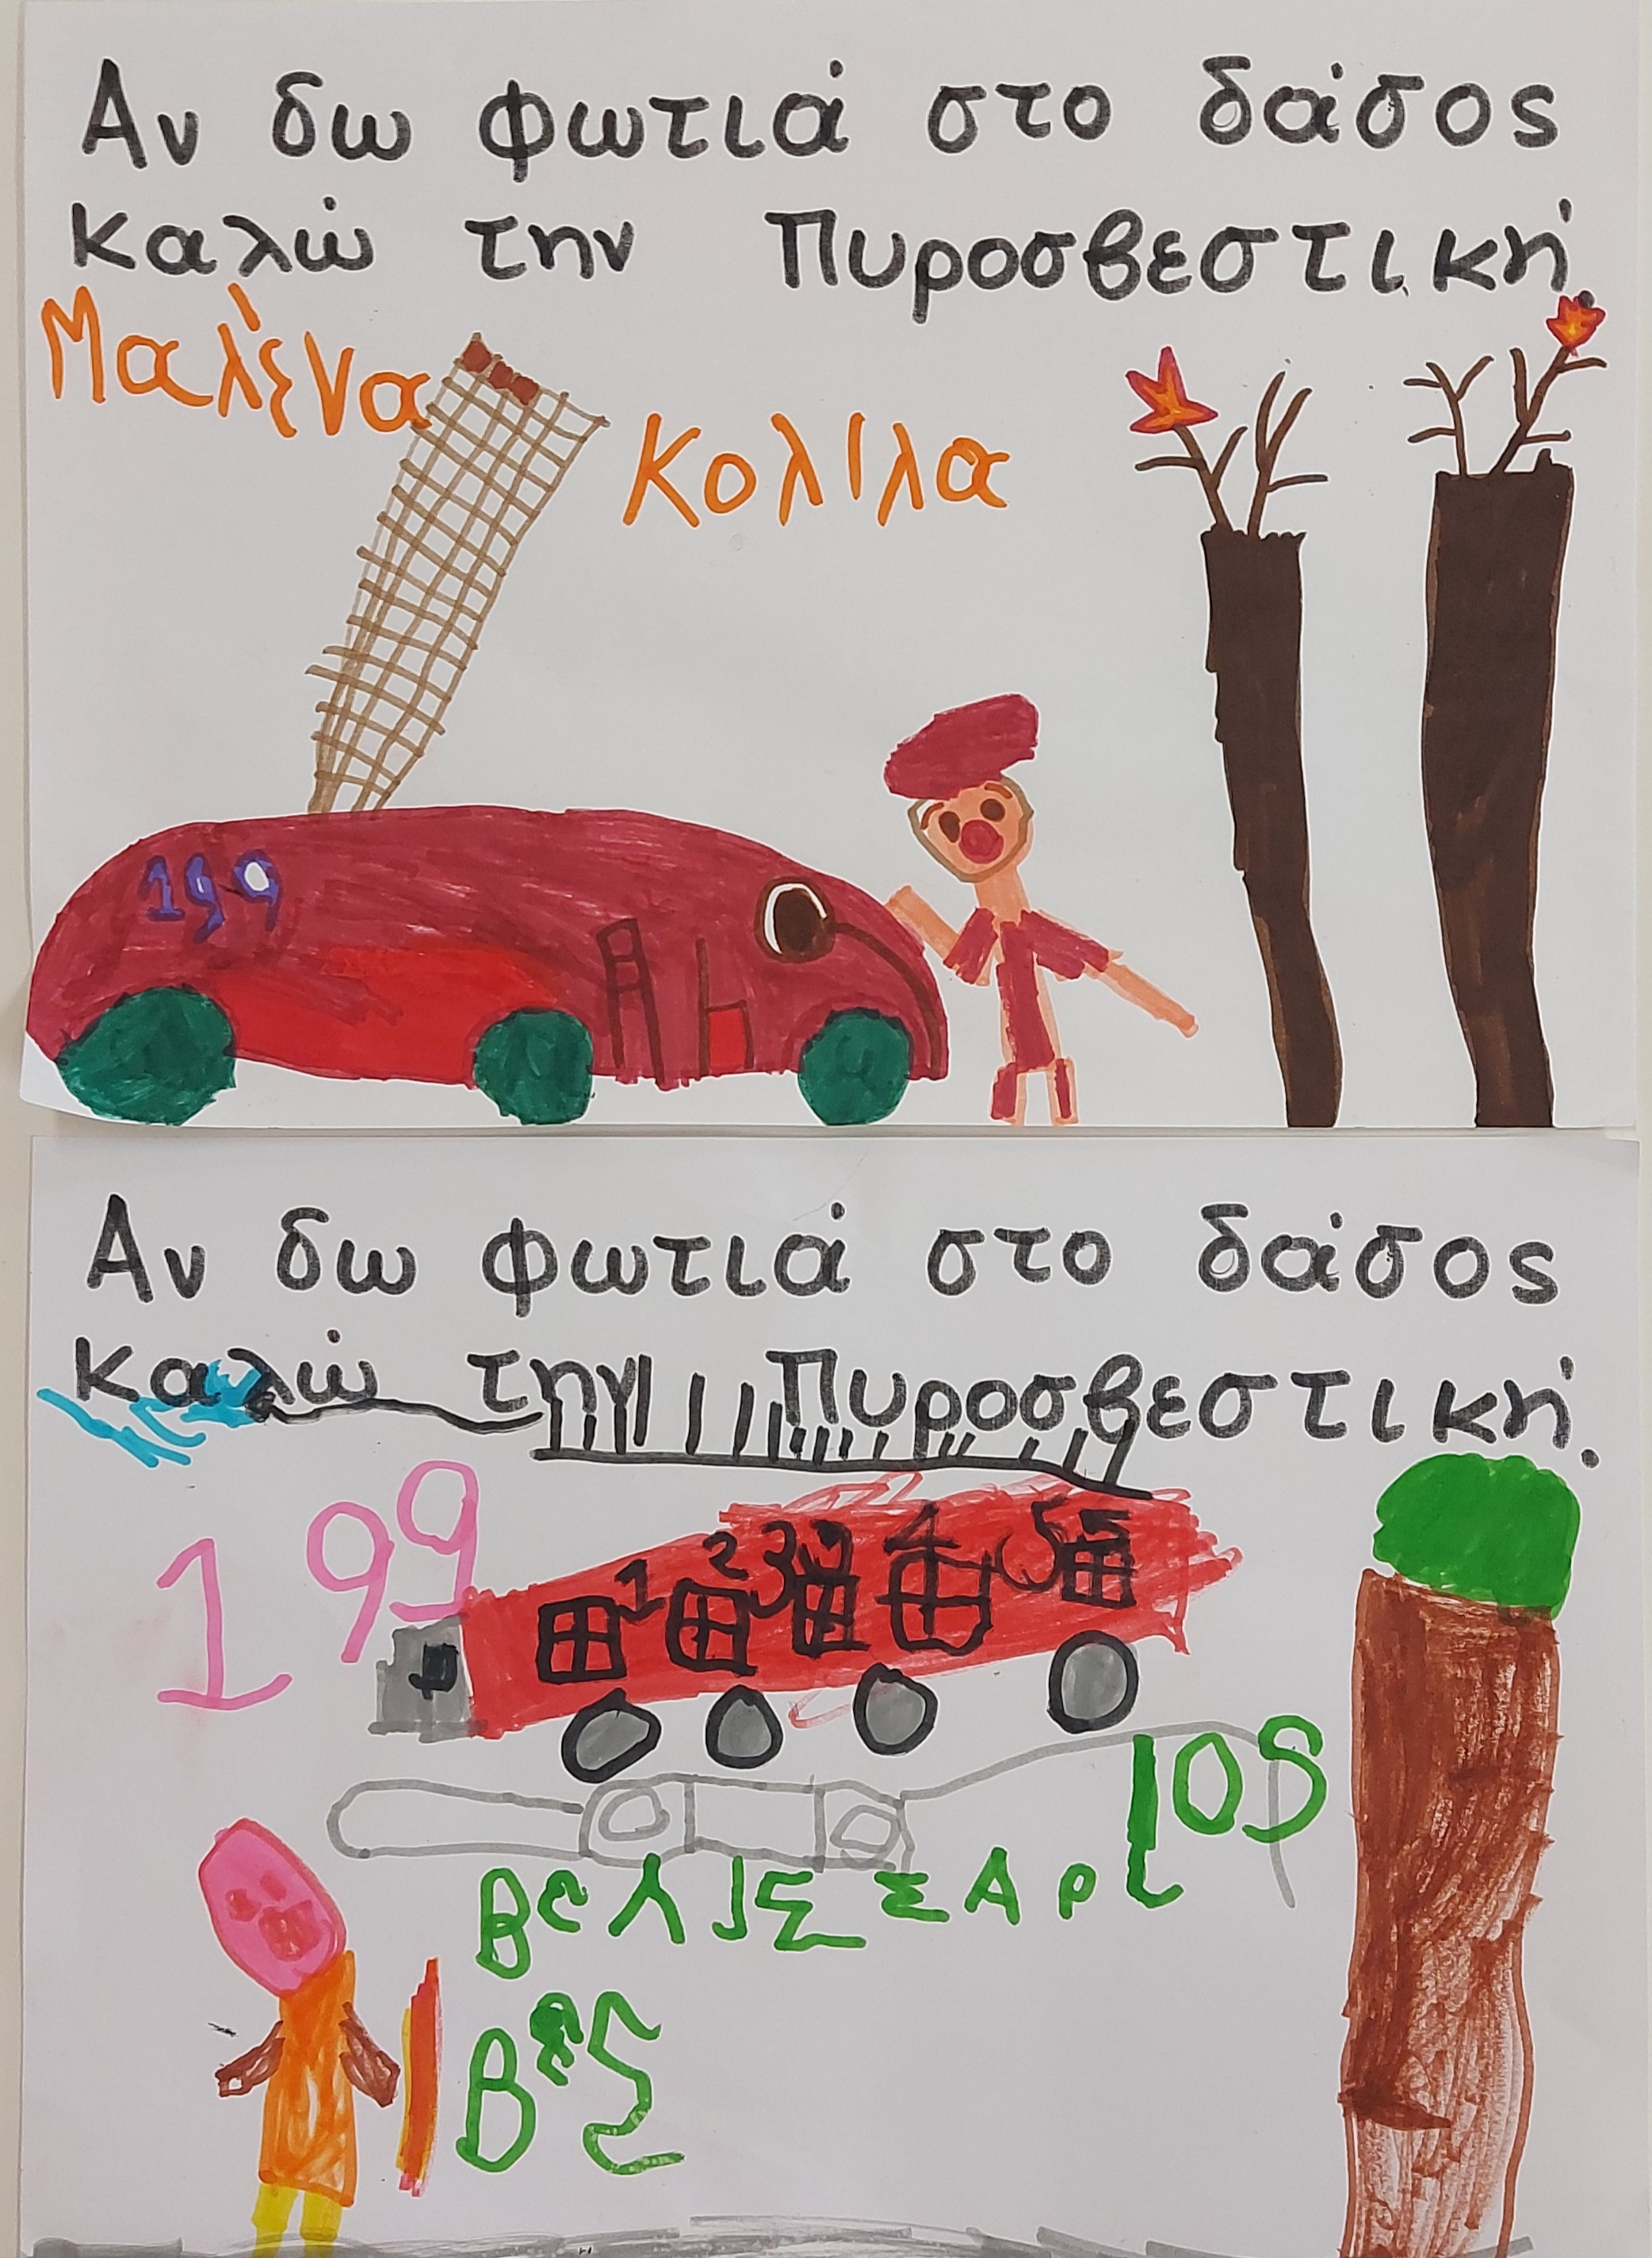 Αν δω φωτιά στο δάσος
καλώ την Πυροσβεστική.
Μαλένα
Κολιλα
199
Αν δω φωτιά στο δάσος
καλώ την Πυροσβεστική.
199
1 2 3 4 5
ΒελισΣΑριος